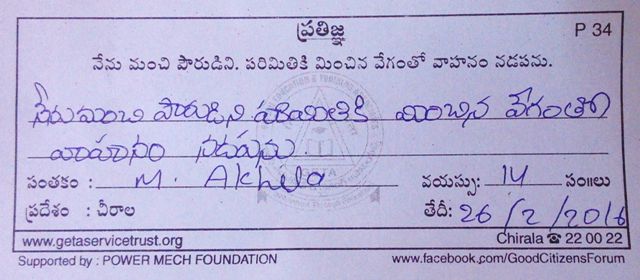 ప్రతిజ్ఞ P 34
నేను మంచి పౌరుడిని. పరిమితికి మించిన వేగంతో వాహనం నడపను.
నేను మంచి పౌరుడిని పరిమితికి మించిన వేగంతో
వాహనం నడపను
సంతకం : M. Akhila వయస్సు: 14 సం॥లు
ప్రదేశం : చీరాల తేదీ: 26/2/2016
www.getaservicetrust.org Chirala ☎ 22 00 22
Supported by : POWER MECH FOUNDATION www.facebook.com/GoodCitizensForum